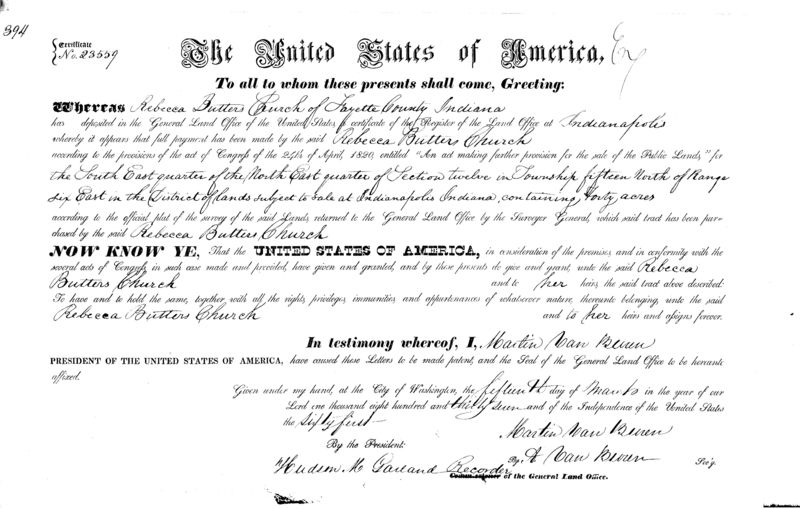 394
Certificate
No. 23559
The United States of America,
To all to whom these presents shall come, Greeting:
Whereas Rebecca Butters Church of Fayette County Indiana
has deposited in the General Land Office of the United States, a certificate of the Register of the Land Office at Indianapolis
whereby it appears that full payment has been made by the said Rebecca Butters Church
according to the provisions of the act of Congress of the 24th of April, 1820, entitled "An act making further provision for the sale of the Public Lands," for
the South East quarter of the North East quarter of Section twelve in Township fifteen North of Range
six East in the District of lands subject to sale at Indianapolis Indiana, containing forty acres
according to the official plat of the survey of the said Lands, returned to the General Land Office by the Surveyor General, which said tract has been pur-
chased by the said Rebecca Butters Church
NOW KNOW YE, That the UNITED STATES OF AMERICA, in consideration of the premises, and in conformity with the
several acts of Congress, in such case made and provided, have given and granted, and by these presents do give and grant, unto the said Rebecca
Butters Church and to her heirs, the said tract above described:
To have and to hold the same, together with all the rights, privileges, immunities, and appurtenances of whatsoever nature, thereunto belonging, unto the said
Rebecca Butters Church and to her heirs and assigns forever.
In testimony whereof, I, Martin Van Buren
PRESIDENT OF THE UNITED STATES OF AMERICA, have caused these Letters to be made patent, and the Seal of the General Land Office to be hereunto
affixed.
Given under my hand, at the City of Washington, the fifteenth day of March in the year of our
Lord one thousand eight hundred and thirty seven and of the Independence of the United States
the Sixty first
Martin Van Buren
By the President:
By A Van Buren Sec'y.
Hudson M Garland Recorder
of the General Land Office.